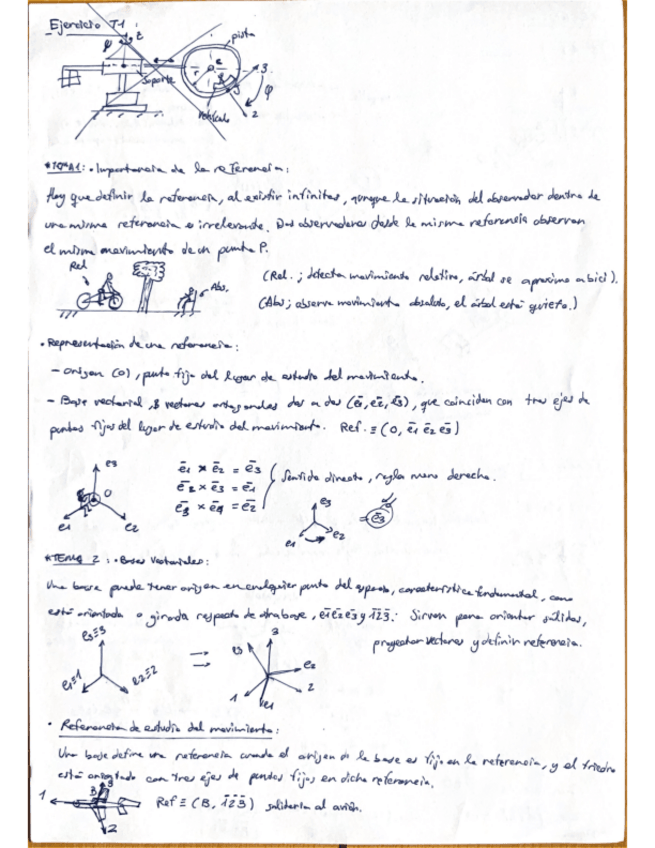 Ejercicio T-1
φ
z
e
pista
soporte
r
e
3
φ
2
vehículo
*TEMA1: • Importancia de la referencia:
Hay que definir la referencia, al existir infinitas, aunque la situación del observador dentro de
una misma referencia es irrelevante. Dos observadores desde la misma referencia observan
el mismo movimiento de un punto P.
Rel
Abs.
(Rel.; detecta movimiento relativo, árbol se aproxima a bici).
(Abs; observa movimiento absoluto, el árbol está quieto.)
• Representación de una referencia:
- Origen (O), punto fijo del lugar de estudio del movimiento.
- Base vectorial, 3 vectores ortogonales dos a dos (ē1, ē2, ē3), que coinciden con tres ejes de
puntos fijos del lugar de estudio del movimiento. Ref. ≡ (O, ē1 ē2 ē3)
e3
O
e1
e2
ē1 × ē2 = ē3
ē2 × ē3 = ē1
ē3 × ē1 = ē2
Sentido directo, regla mano derecha.
e3
e2
e1
= ē3
*TEMA 2: • Bases Vectoriales:
Una base puede tener origen en cualquier punto del espacio, característica fundamental, como
está orientada o girada respecto de otra base, e1e2e3 y 123. Sirven para orientar sólidos,
proyectar vectores y definir referencia.
e3≡3
e1≡1
e2≡2
⇒
3
e3
e2
2
1
e1
• Referencia de estudio del movimiento:
Una base define una referencia cuando el origen de la base es fijo en la referencia, y el triedro
está orientado con tres ejes de puntos fijos en dicha referencia.
1
B
3
2
Ref ≡ (B, 1̄2̄3̄) solidaria al avión.